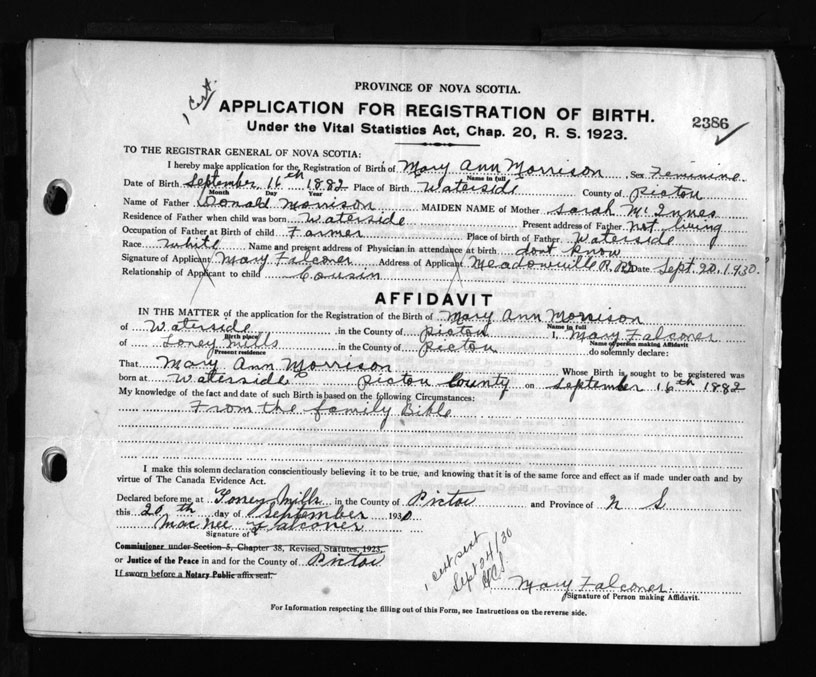 PROVINCE OF NOVA SCOTIA.
1 cert.
APPLICATION FOR REGISTRATION OF BIRTH.
2386
Under the Vital Statistics Act, Chap. 20, R. S. 1923.
TO THE REGISTRAR GENERAL OF NOVA SCOTIA:
I hereby make application for the Registration of Birth of Mary Ann Morrison Sex Feminine
Name in full
Date of Birth September 16th 1882 Place of Birth Waterside County of Pictou
Month Day Year
Name of Father Donald Morrison MAIDEN NAME of Mother Sarah McInnes
Residence of Father when child was born Waterside Present address of Father not living
Occupation of Father at Birth of child Farmer Place of birth of Father Waterside
Race white Name and present address of Physician in attendance at birth dont know
Signature of Applicant Mary Falconer Address of Applicant Meadowville R. R. Date Sept. 20, 1930.
Relationship of Applicant to child Cousin
AFFIDAVIT
IN THE MATTER of the application for the Registration of the Birth of Mary Ann Morrison
Name in full
of Waterside in the County of Pictou I, Mary Falconer
Birth place Name of person making Affidavit
of Toney Mills in the County of Pictou do solemnly declare:
Present residence
That Mary Ann Morrison Whose Birth is sought to be registered was
born at Waterside Pictou County on September 16th 1882
My knowledge of the fact and date of such Birth is based on the following Circumstances:
From the family Bible
I make this solemn declaration conscientiously believing it to be true, and knowing that it is of the same force and effect as if made under oath and by
virtue of The Canada Evidence Act.
Declared before me at Toney Mills in the County of Pictou and Province of N S
this 20th day of September 1930
MacNee Falconer
Signature of
Commissioner under Section 5, Chapter 38, Revised Statutes, 1923.
or Justice of the Peace in and for the County of Pictou
If sworn before a Notary Public affix seal.
1 cert sent
Sept 24/30
Mary Falconer
Signature of Person making Affidavit.
For Information respecting the filling out of this Form, see Instructions on the reverse side.